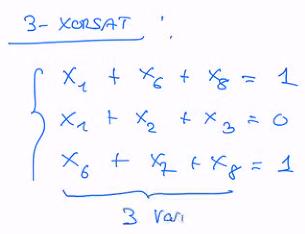 3-XORSAT :
x₁ + x₆ + x₈ = 1
x₁ + x₂ + x₃ = 0
x₆ + x₇ + x₈ = 1
3 vari